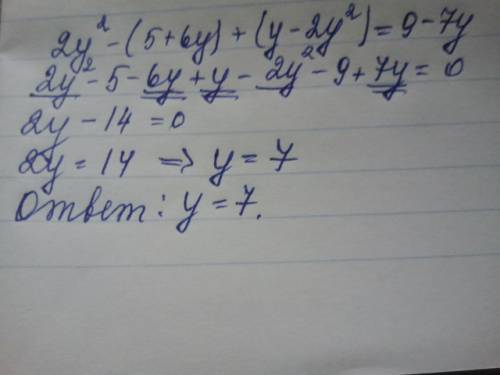 2y² - (5+6y) + (y - 2y²) = 9 - 7y
2y² - 5 - 6y + y - 2y² - 9 + 7y = 0
2y - 14 = 0
2y = 14 => y = 7
Ответ: y = 7.